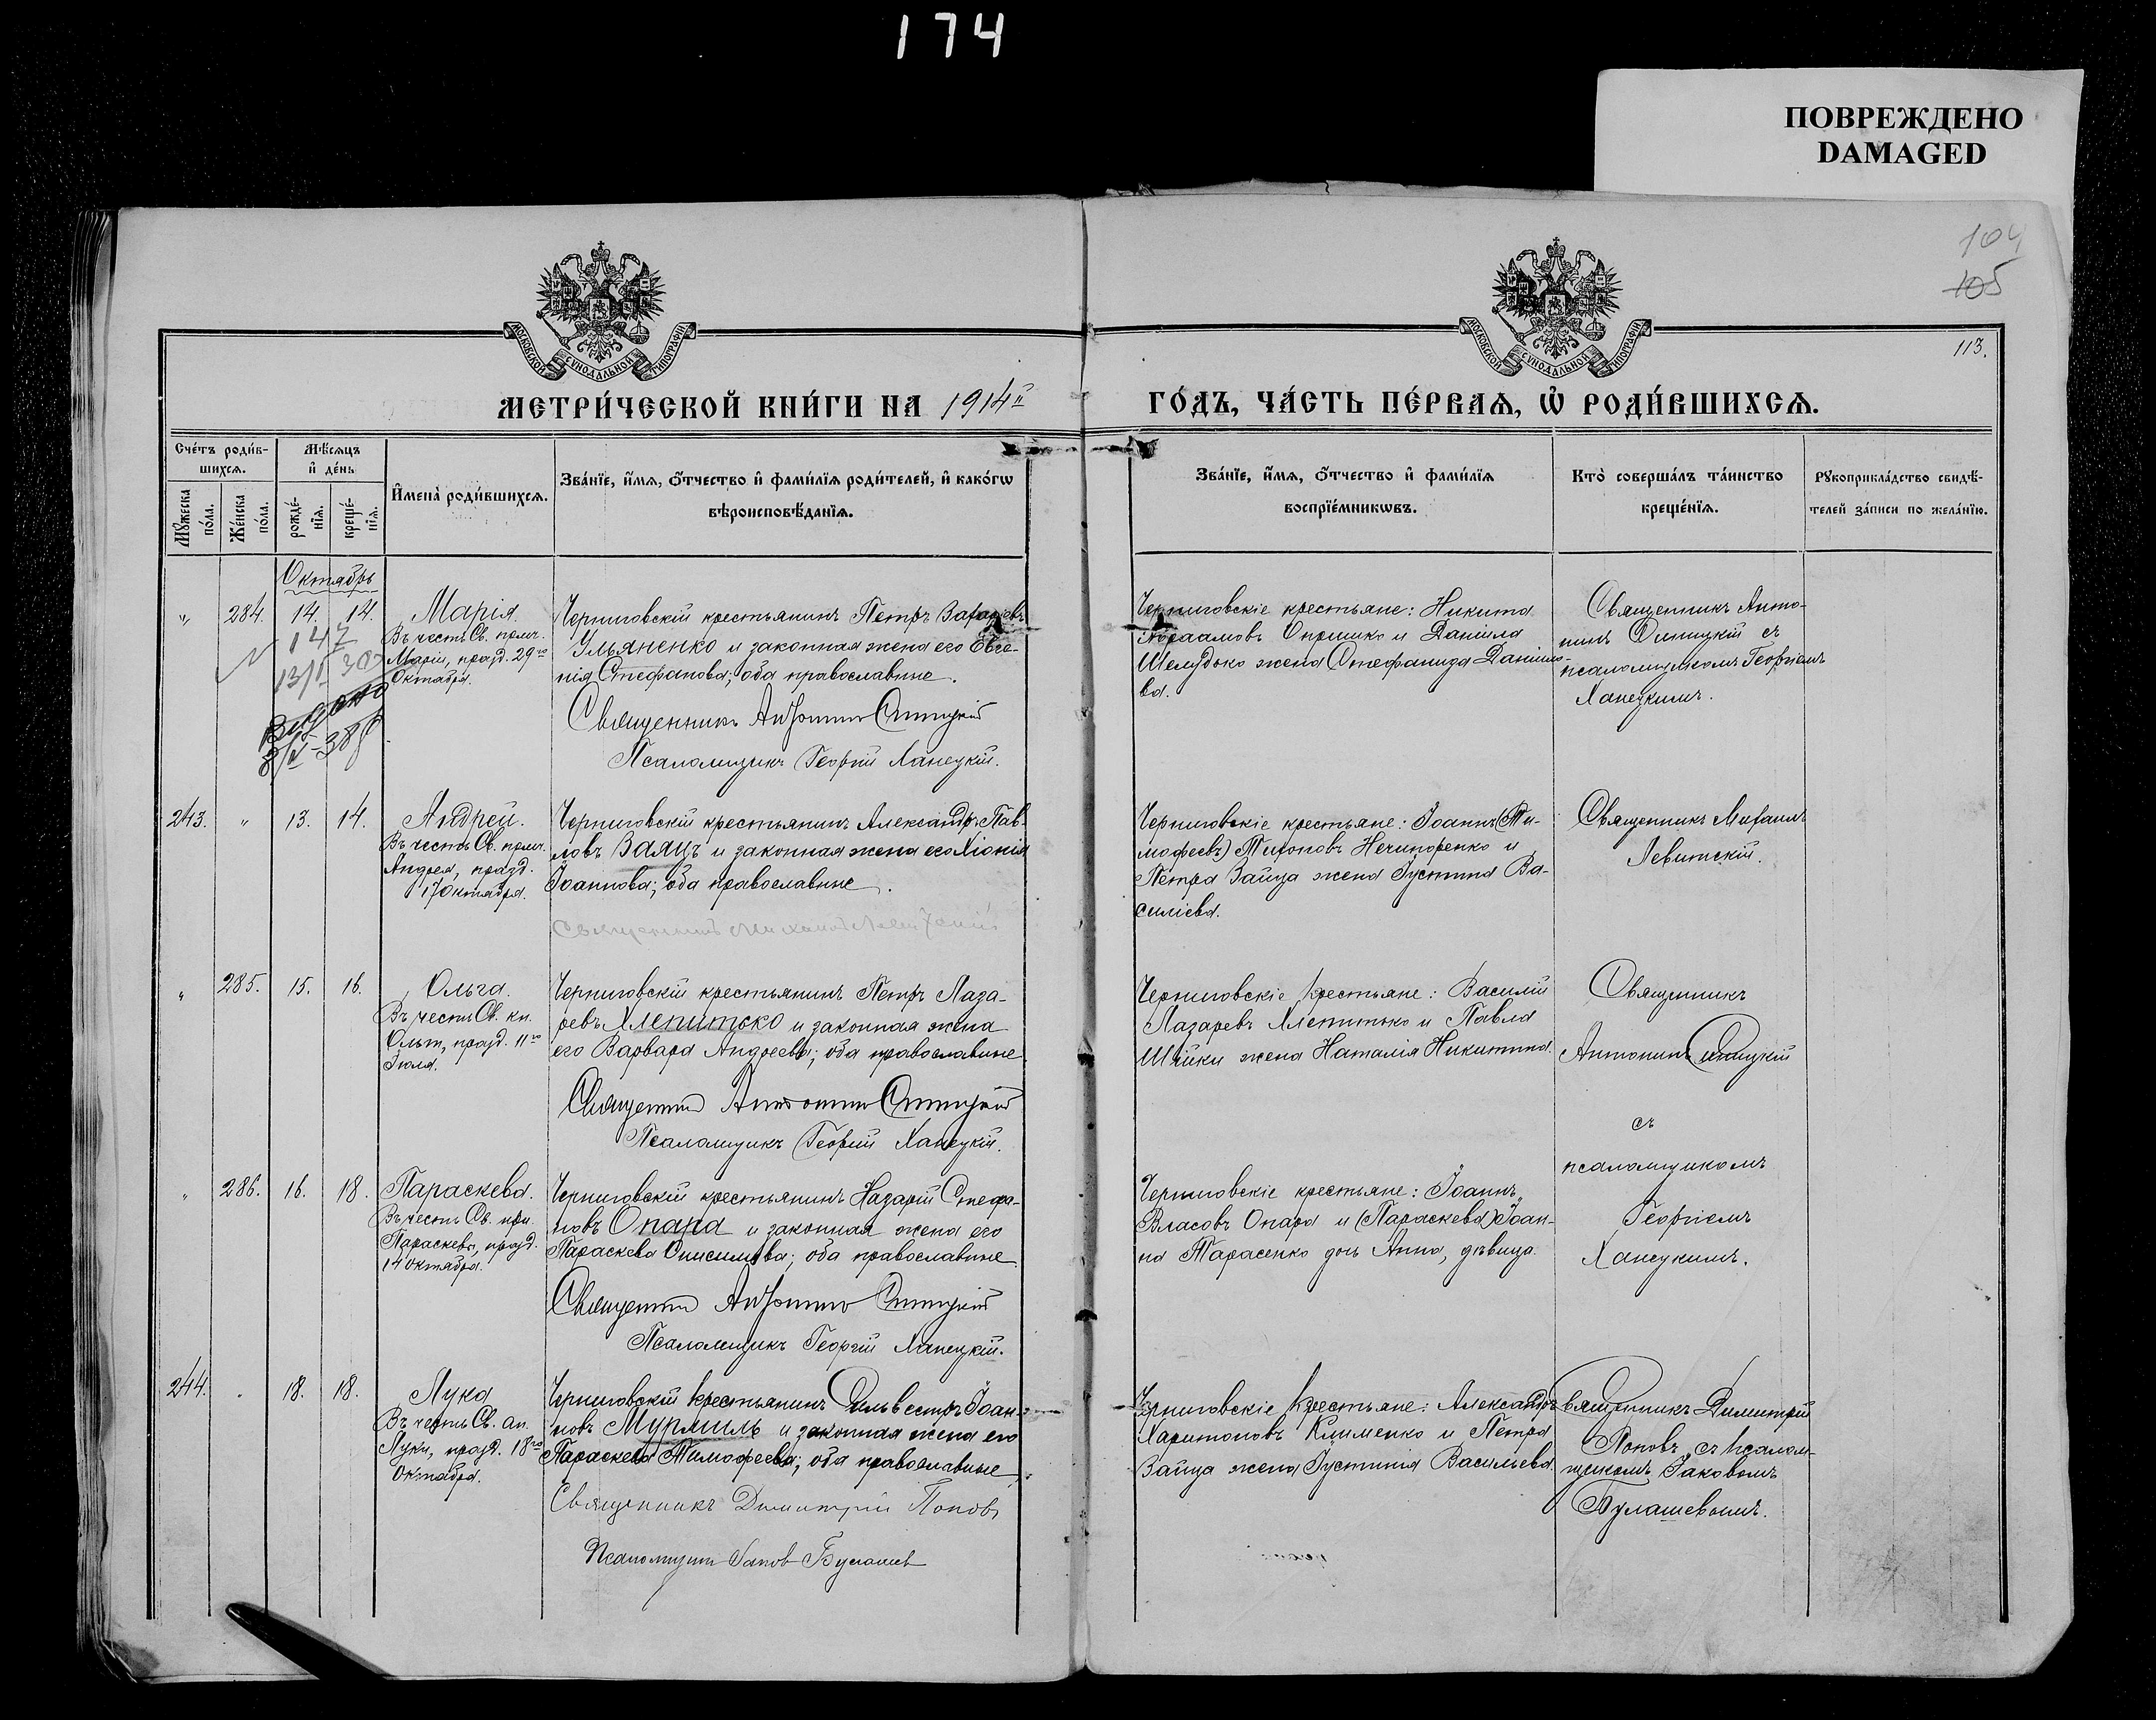 174
ПОВРЕЖДЕНО
DAMAGED
104
105
113.
МОСКОВСКОЙ СѴНОДАЛЬНОЙ ТИПОГРАФІИ
МОСКОВСКОЙ СѴНОДАЛЬНОЙ ТИПОГРАФІИ
МЕТРИ́ЧЕСКОЙ КНИ́ГИ НА 1914й
ГО́ДЪ, ЧА́СТЬ ПЕ́РВАѦ, Ѡ҆ РОДИ́ВШИХСѦ.
Сче́тъ роди́в-
шихсѧ.
Мꙋжеска по́ла.
Же́нска по́ла.
Мѣ́сѧцъ
и҆ де́нь
рожде́-
нїѧ.
креще́-
нїѧ.
И҆мена̀ роди́вшихсѧ.
Зва́нїе, и҆́мѧ, ѻ҆́тчество и҆ фами́лїѧ роди́телей, и҆ како́гѡ
вѣроисповѣ́данїѧ.
Зва́нїе, и҆́мѧ, ѻ҆́тчество и҆ фами́лїѧ
воспрїе́мникѡвъ.
Кто̀ соверша́лъ та́инство
креще́нїѧ.
Рꙋкоприкла́дство свидѣ́-
телей за́писи по жела́нїю.
Октябрь
„ 284. 14. 14.
147
Марія.
Въ честь Св. прмч.
Маріи, празд. 29го
Октября.
Черниговскій крестьянинъ Петръ
Ульяненко и законная жена его Евге-
нія Стефанова; оба православные.
Священникъ Антонинъ
Псаломщикъ Георгій Ханецкій.
Черниговскіе крестьяне: Никита
Авраамовъ Опришко и Даніила
Шелудько жена Стефанида Данило-
ва.
Священникъ Анто-
нинъ съ
псаломщикомъ Георгіемъ
Ханецкимъ.
243. „ 13. 14.
Андрей.
Въ честь Св. прмч.
Андрея, празд.
17 Октября.
Черниговскій крестьянинъ Александръ Пав-
ловъ Заяцъ и законная жена его Хіонія
Іоаннова; оба православные.
Священникъ Михаилъ Левитскій
Черниговскіе крестьяне: Іоаннъ (Ти-
мофеевъ) Тихоновъ Нечипоренко и
Петра Зайца жена Іустина Ва-
силіева.
Священникъ Михаилъ
Левитскій.
„ 285. 15. 16.
Ольга.
Въ честь Св. кн.
Ольги, празд. 11го
Іюля.
Черниговскій крестьянинъ Петръ Лаза-
ревъ Хлепитько и законная жена
его Варвара Андреева; оба православные
Священникъ Антонинъ
Псаломщикъ Георгій Ханецкій.
Черниговскіе крестьяне: Василій
Лазаревъ Хлепитько и Павла
Шійки жена Наталія Никитина.
Священникъ
Антонинъ
съ
псаломщикомъ
Георгіемъ
Ханецкимъ.
„ 286. 16. 18.
Параскева.
Въ честь Св. прп.
Параскевы, празд.
14 октября.
Черниговскій крестьянинъ Назарій Стефа-
новъ Опара и законная жена его
Параскева Онисимова; оба православные
Священникъ Антонинъ
Псаломщикъ Георгій Ханецкій.
Черниговскіе крестьяне: Іоаннъ
Власовъ Опара и (Параскева) Іоан-
на Тарасенко дочь Анна, дѣвица.
244. „ 18. 18.
Лука
Въ честь Св. ап.
Луки, празд. 18го
октября.
Черниговскій крестьянинъ Сильвестръ Іоан-
новъ Мурмиль и законная жена его
Параскева Тимофеева; оба православные
Священникъ Димитрій Поповъ
Псаломщикъ Іаковъ Булашевъ
Черниговскіе крестьяне: Александръ
Харитоновъ Клименко и Петра
Зайца жена Іустинія Васильева.
Священникъ Димитрій
Поповъ съ псалом-
щикомъ Іаковомъ
Булашевымъ.